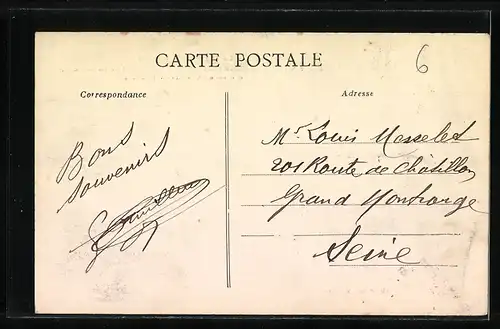 CARTE POSTALE
6
Correspondance
Adresse
Bons
souvenirs
Mr Louis Messelet
201 Route de Châtillon
Grand Montrouge
Seine